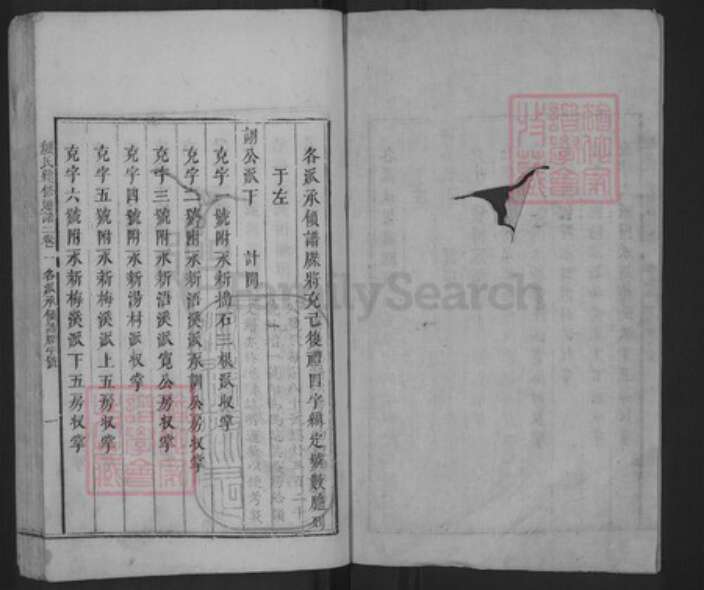 各派承領譜牒將克己復禮四字編定號數臚列
于左
詡公派下 計開
克字一號附永新 石三根派收掌
克字二號附永新浯溪派永訓公房收掌
克字三號附永新浯溪派寬公房收掌
克字四號附永新湯村派收掌
克字五號附永新梅溪派上五房收掌
克字六號附永新梅溪派下五房收掌
氏總修通譜 卷一 各派承領譜牒字號 一
FamilySearch